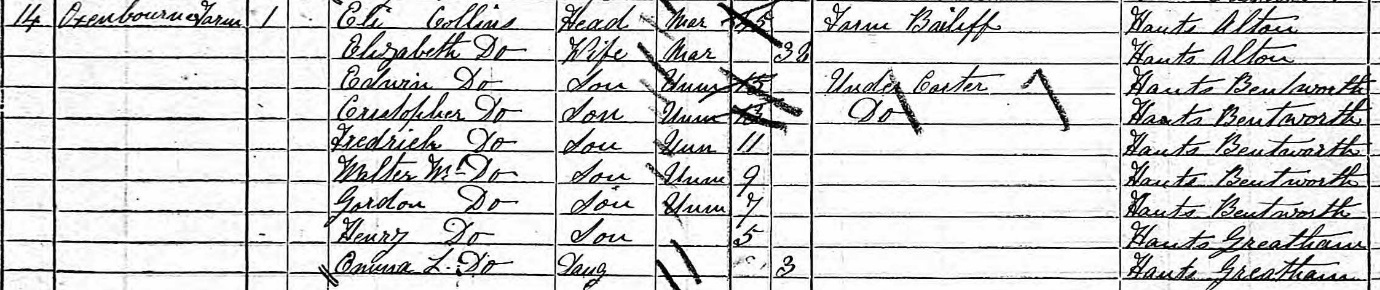 14 Oxenbourne Farm 1 Eli Collins Head Mar 45 Farm Bailiff Hants Alton
Elizabeth Do Wife Mar Hants Alton
Edwin Do Son Unm 15 Under Carter Hants Bentworth
Cristopher Do Son Unm 13 Do Hants Bentworth
Fredrick Do Son Unm 11 Hants Bentworth
Walter Wm Do Son Unm 9 Hants Bentworth
Gordon Do Son Unm 7 Hants Bentworth
Henry Do Son 5 Hants Greatham
Emma L. Do Daug 3 Hants Greatham